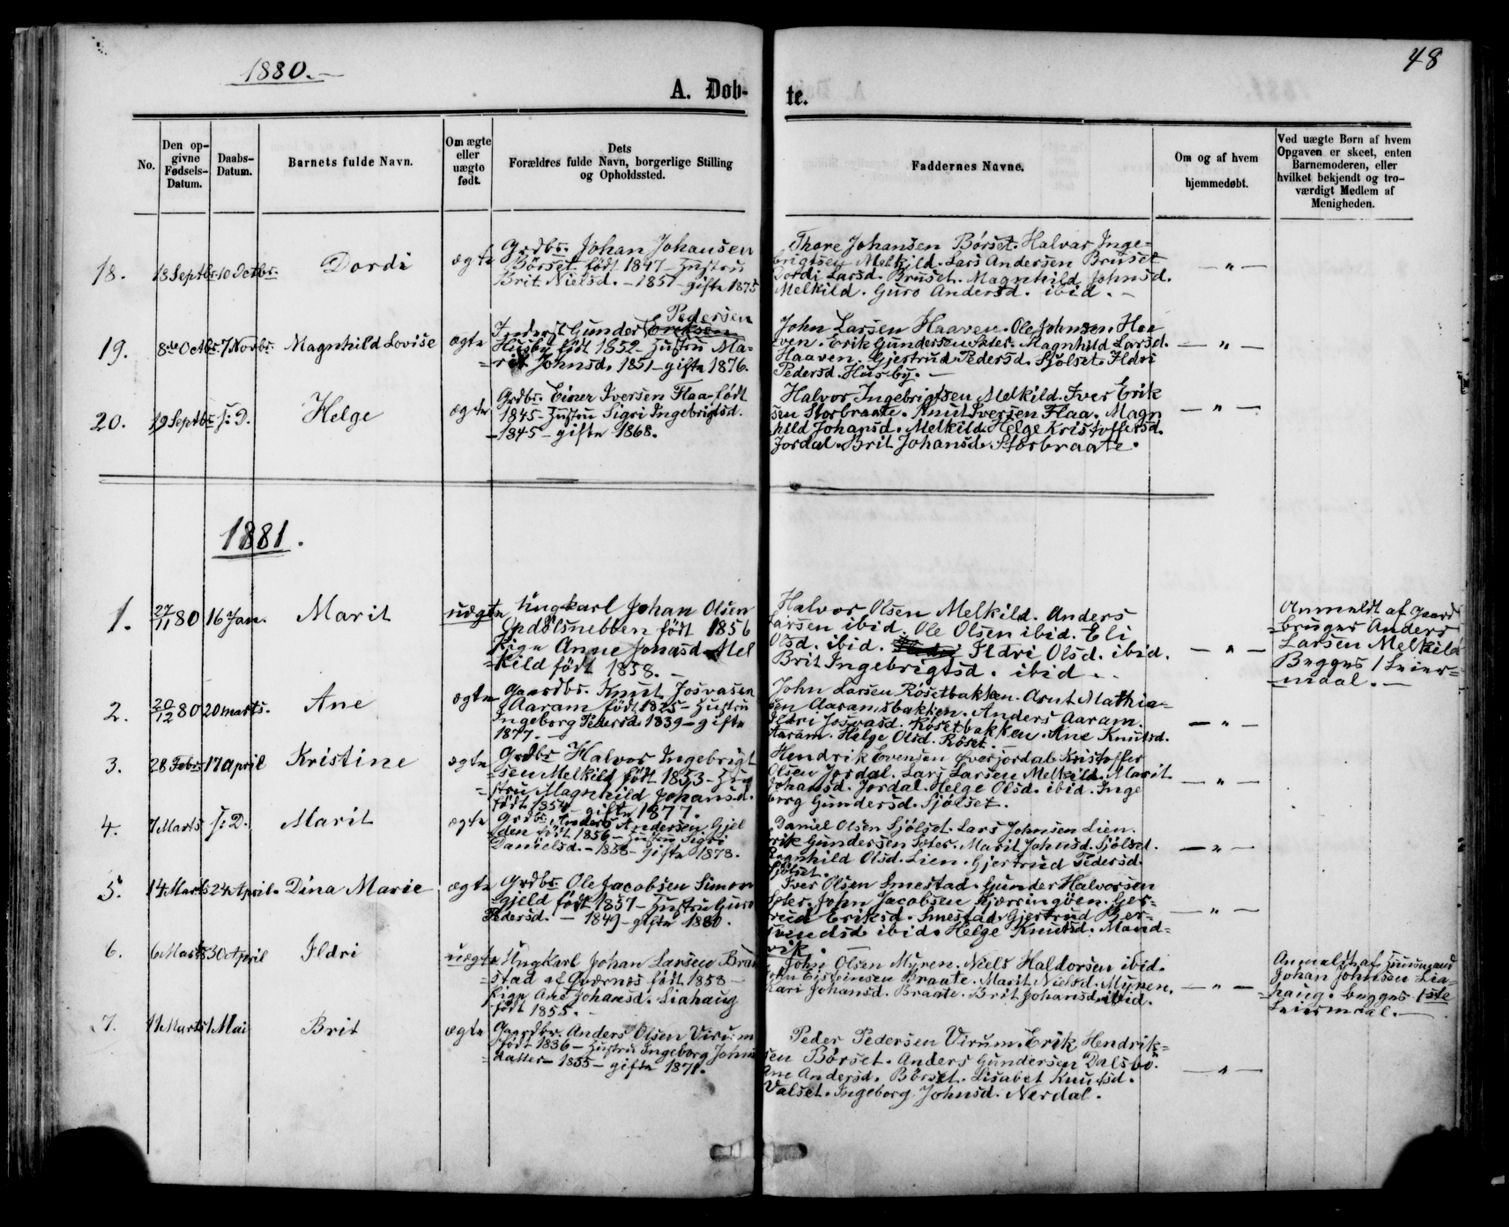 48
1880.
A. Døb-
te.
No.
Den op-
givne
Fødsels-
Datum.
Daabs-
Datum.
Barnets fulde Navn.
Om ægte
eller
uægte
født.
Dets
Forældres fulde Navn, borgerlige Stilling
og Opholdssted.
Faddernes Navne.
Om og af hvem
hjemmedøbt.
Ved uægte Børn af hvem
Opgaven er skeet, enten
Barnemoderen, eller
hvilket bekjendt og tro-
værdigt Medlem af
Menigheden.
18. 13 Septbr 10 Octbr. Dordi ægte
Grdbr. Johan Johansen
Børset født 1847 – Hustru
Brit Nielsd. – 1857 – gifte 1875
Thore Johansen Børset. Halvar Inge-
brigtsen Melkild. Lars Andersen Brüset
Dordi Larsd. Brüset. Magnhild Johnsd.
Melkild. Guro Andersd. ibid. –
— " —
19. 8de Octbr. 7 Novbr. Magnhild Lovise ægte
Pedersen
Inderst Gunder Eriksen
Husby født 1852 – Hustru Ma-
rit Johnsd. 1851 – gifte 1876.
John Larsen Haaven. Ole Johnsen. Haa
ven. Erik Gundersen Sæter. Magnhild Larsd.
Haaven. Gjertrud Pedersd. Sjølset. Ildri
Pedersd. Husby. –
— " —
20. 19 Septbr s: D. Helge ægte
Grdbr. Einer Iversen Flaa født
1845 – Hustru Sigri Ingebrigtsd.
– 1845 – gifte 1868.
Halvor Ingebrigtsen Melkild. Iver Erik
sen Storbraate. Knut Iversen Flaa. Magn
hild Johansd. Melkild. Helge Kristoffersd.
Jordal. Brit Johansd. Storbraate.
— " —
1881.
1. 27/11 80 16 Jan. Marit uægte
Ungkarl Johan Olsen
Opdölsnebben født 1856
Pige Anne Jonasd. Mel
kild født 1858. –
Halvor Olsen Melkild. Anders
Larsen ibid. Ole Olsen ibid. Eli
Olsd. ibid. Ildri Olsd. ibid.
Brit Ingebrigtsd. ibid.
— " —
Anmeldt af Gaard
bruger Anders
Larsen Melkild
Begges 1 Leier-
maal. –
2. 20/12 80 20 marts. Ane ægte
Gaardbr. Knut Josvasen
Aaram født 1825 – Hustru
Ingeborg Pedersd. 1839 – gifte
1877. –
John Larsen Røsetbakken. Arnt Mathia-
sen Aaramsbakken. Anders Aaram.
Ildri Josvasd. Røsetbakken. Ane Knutsd.
Aaram. Helge Olsd. Røset. –
— " —
3. 28 Febr. 17 April Kristine ægte
Grdbr Halvor Ingebrigt
sen Melkild født 1853 – Hu
stru Magnhild Johansd.
født 1854 – gifte 1877.
Hendrik Evensen Øverjordal. Kristoffer
Olsen Jordal. Lars Larsen Melkild. Marit
Johansd. Jordal. Helge Olsd. ibid. Inge
borg Gundersd. Sjølset.
— " —
4. 7 Marts s: D. Marit ægte
Grdbr. Anders Andersen Gjel
den født 1856 – Hustru Sigri
Danielsd. – 1858 – gifte 1878.
Daniel Olsen Sjölset. Lars Johnsen Lien.
Erik Gundersen Sæter. Marit Johnsd. Sjölset.
Ragnhild Olsd. Lien. Gjertrud Pedersd.
Sjölset.
— " —
5. 14 Marts 24 April. Dina Marie ægte
Grdbr. Ole Jacobsen Simon
gjeld født 1857 – Hustru Guro
Pedersd. – 1849 – gifte 1880.
Iver Olsen Smestad. Gunder Halvorsen
Sæter. John Jacobsen Kjærringøen. Gjer-
trud Eriksd. Smestad. Gjertrud Ber-
svendsd. ibid. Helge Knutsd. Mand-
vik.
— " —
6. 6 Marts 30 April Ildri uægte
Ungkarl Johan Larsen Bran
stad af Qværnes født 1858 –
Pige Ane Johansd. Liahaug
født 1855. –
John Olsen Myren. Niels Haldorsen ibid.
Braate. Marit Nielsd. Myren.
Kari Johansd. Braate. Brit Johansd. ibid.
— " —
Anmeldt af Huusmand
Johan Johnsen Lia-
haug. begges 1ste
Leiermaal. –
7. 11 Marts 1 Mai Brit ægte
Gaardbr. Anders Olsen Virum
født 1836 – Hustru Ingeborg Johns
datter – 1835 – gifte 1871.
Peder Pedersen Virum. Erik Hendrik-
sen Børset. Anders Gundersen Dalsbø.
Ane Andersd. Børset. Lisabet Knutsd.
Valset. Ingeborg Johnsd. Nerdal.
— " —